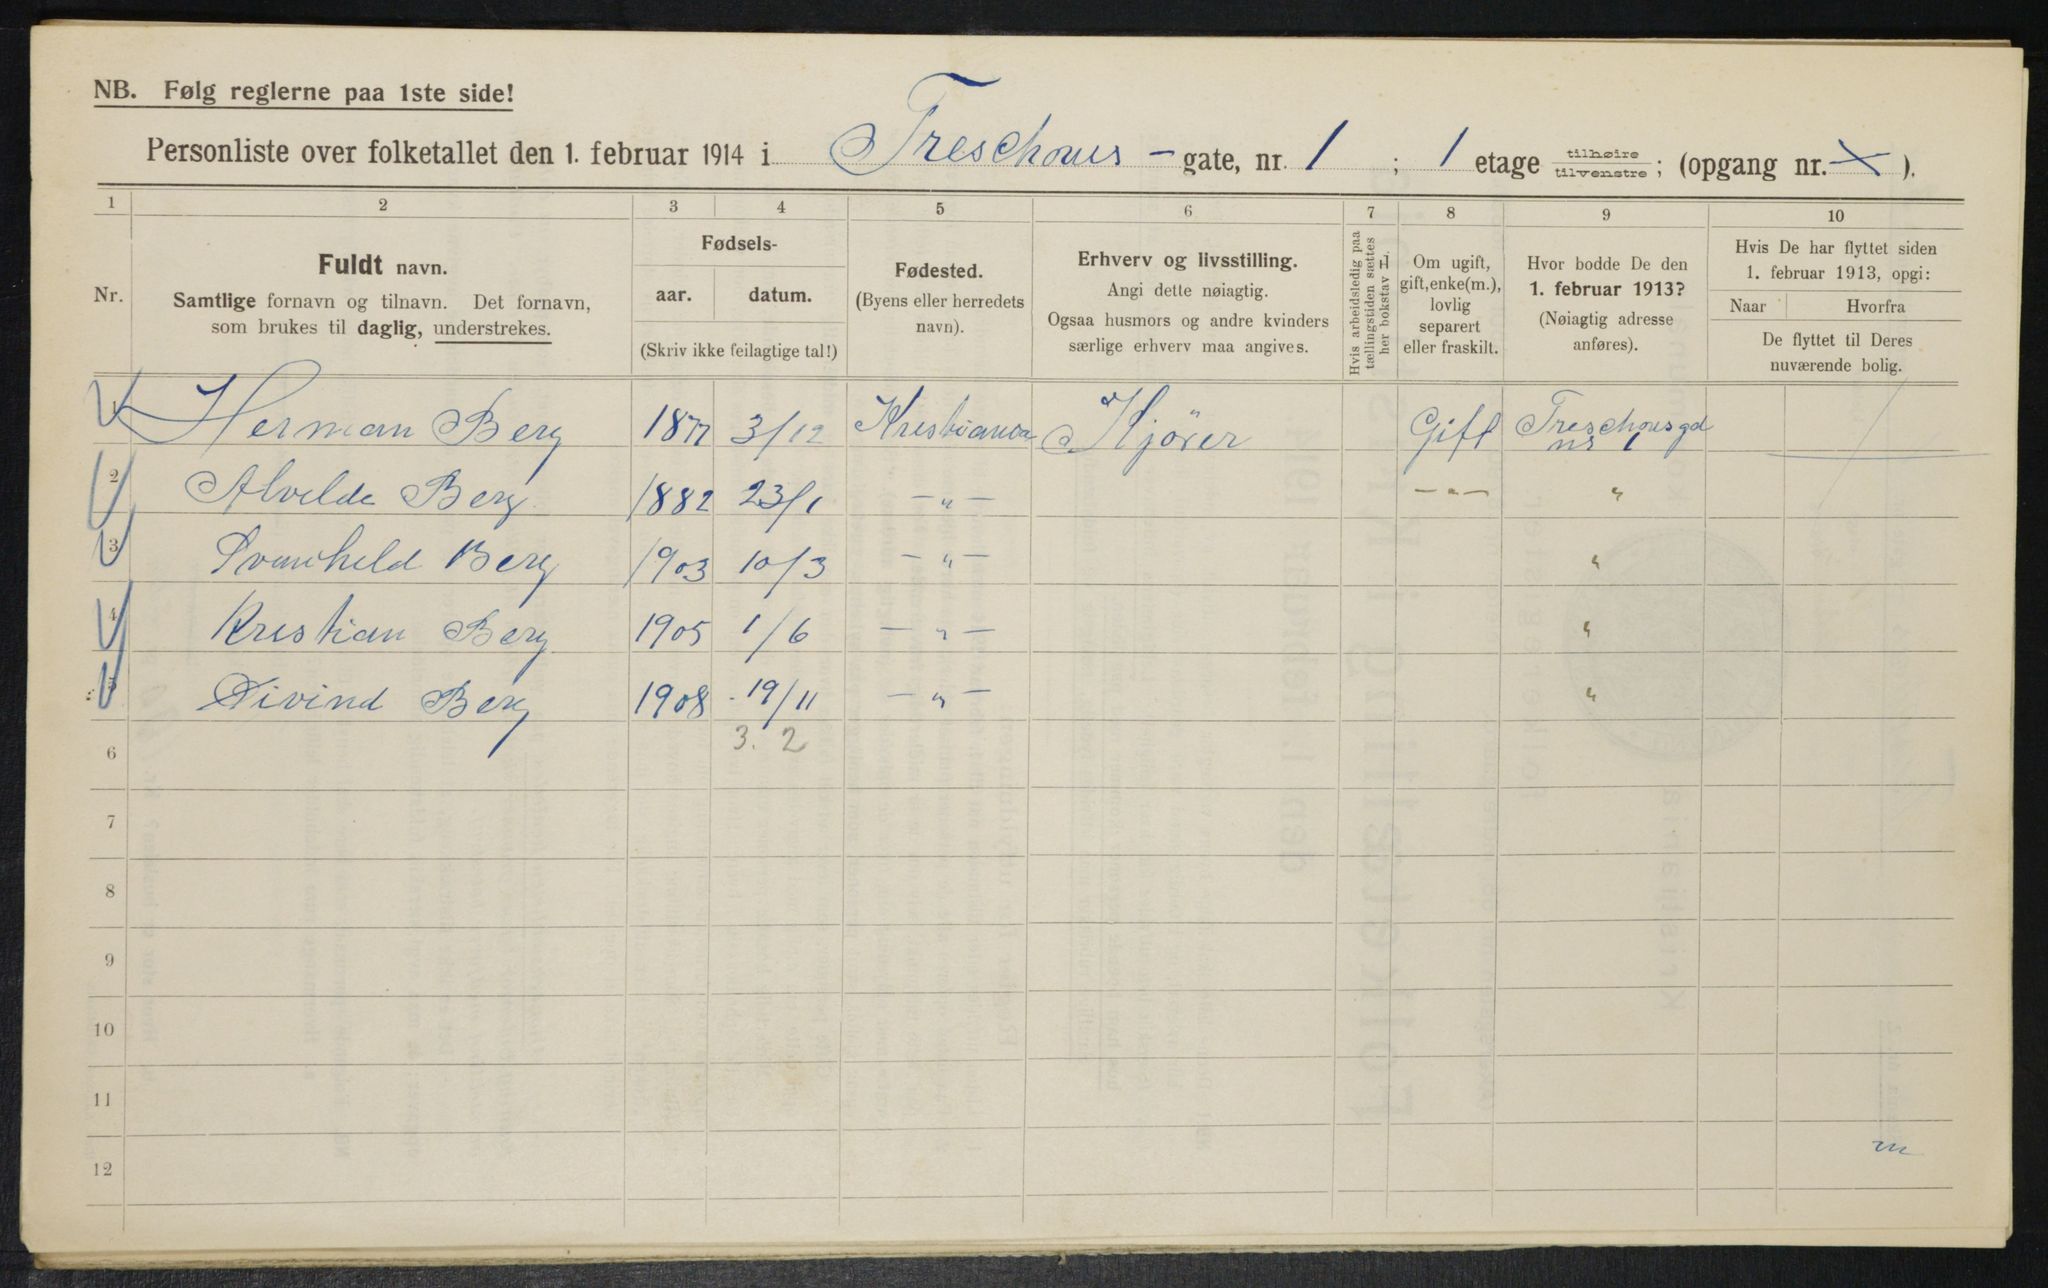 NB. Følg reglerne paa 1ste side!
Personliste over folketallet den 1. februar 1914 i Treschous - gate, nr. 1 ; 1 etage tilhøire tilvenstre ; (opgang nr. X ).
1 2 3 4 5 6 7 8 9 10
Nr.
Fuldt navn.
Samtlige fornavn og tilnavn. Det fornavn,
som brukes til daglig, understrekes.
Fødsels-
aar. datum.
(Skriv ikke feilagtige tal!)
Fødested.
(Byens eller herredets
navn).
Erhverv og livsstilling.
Angi dette nøiagtig.
Ogsaa husmors og andre kvinders
særlige erhverv maa angives.
Hvis arbeidsledig paa
tællingstiden sættes
her bokstav L.
Om ugift,
gift, enke(m.),
lovlig
separert
eller fraskilt.
Hvor bodde De den
1. februar 1913?
(Nøiagtig adresse
anføres).
Hvis De har flyttet siden
1. februar 1913, opgi:
Naar Hvorfra
De flyttet til Deres
nuværende bolig.
1 Herman Berg 1877 3/12 Kristiania Kjører Gift Treschousgd
nr 1
2 Alvilde Berg 1882 23/1 — " — — " — "
3 Svanhild Berg 1903 10/3 — " — "
4 Kristian Berg 1905 1/6 — " — "
5 Øivind Berg 1908 19/11 — " — "
3. 2
6
7
8
9
10
11
12